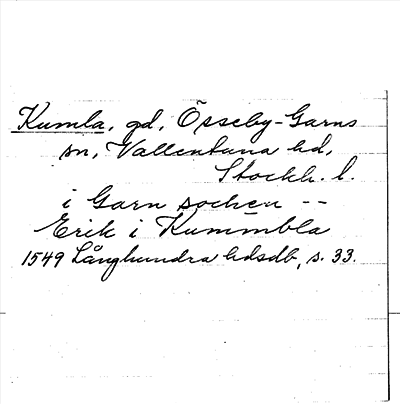 Kumla, gd, Össeby-Garns
sn, Vallentuna hd,
Stockh. l.
i Garn sochen --
Erik i Kummbla
1549 Långhundra hdsdb, s. 33.